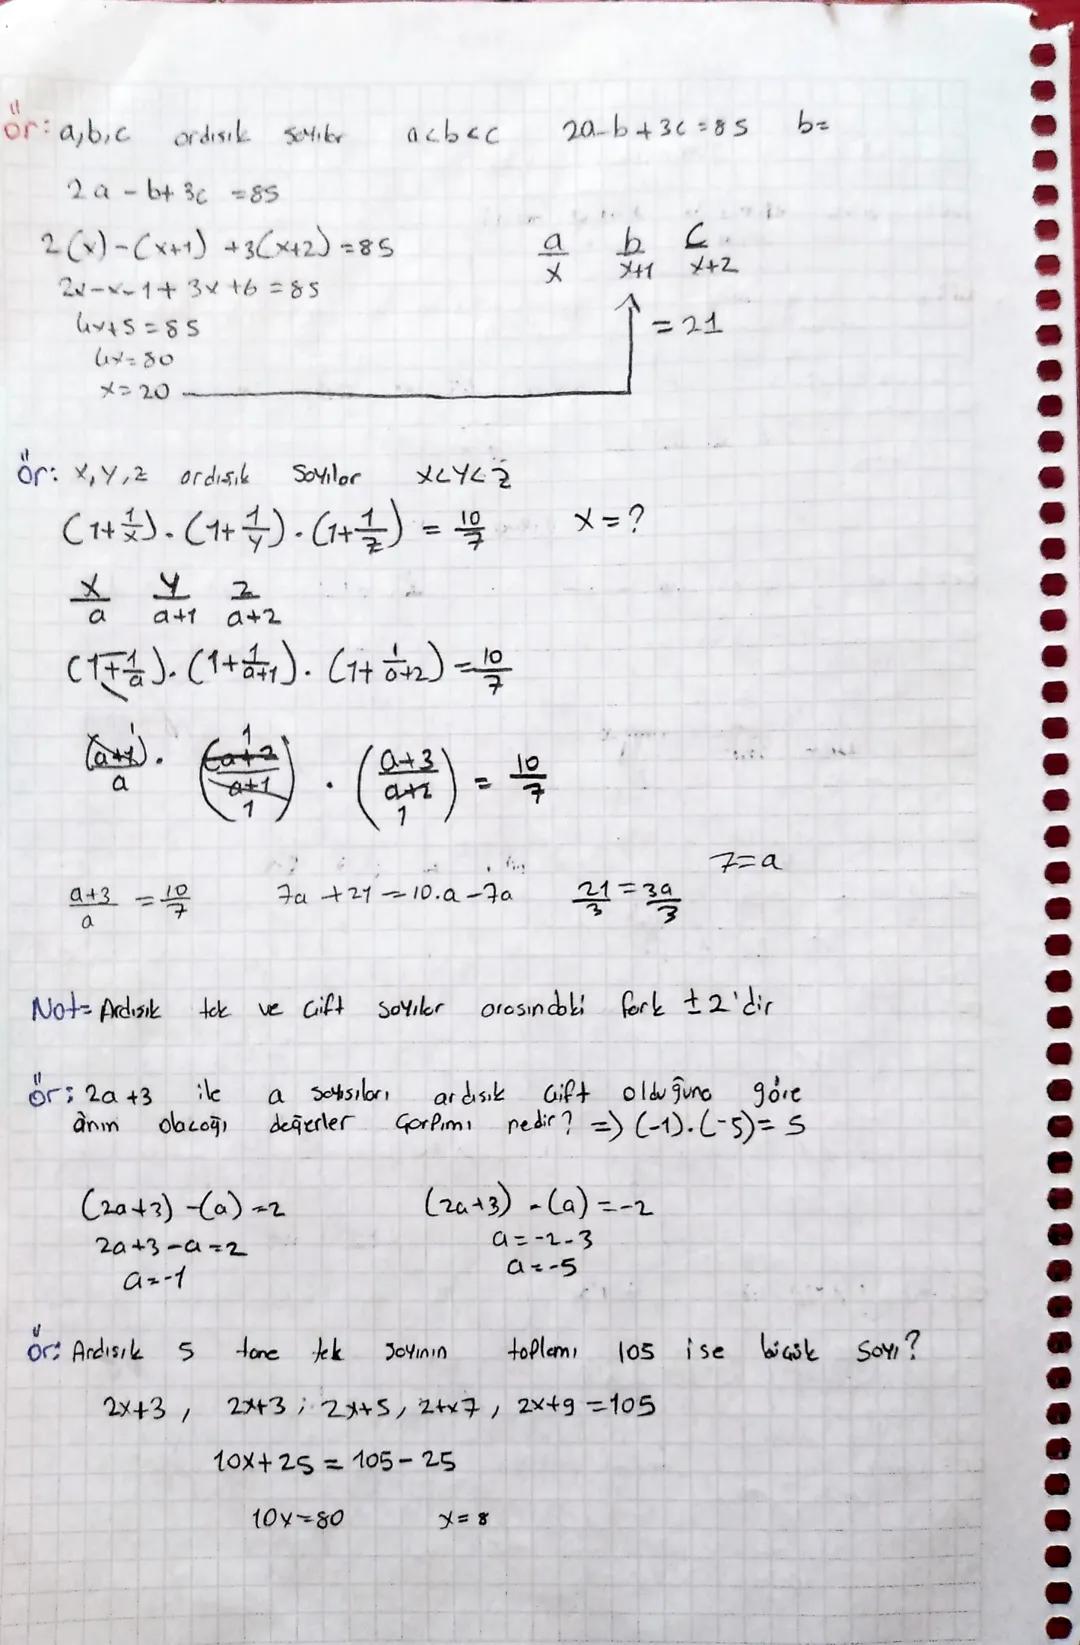 ör: a,b,c ardışık sayılar a<b<c 2a-b+3c=85 b=
2a-b+3c=85
2(x)-(x+1)+3(x+2)=85
a/x b/x+1 c/x+2
2x-x-1+3x+6=85
4x+5=85
=21
4x=80
x=20
ör: x,y,z ardışık sayılar x<y<z
(1+1/x).(1+1/y).(1+1/z)=10/7 x=?
x/a y/a+1 z/a+2
(1+1/a).(1+1/a+1).(1+1/a+2)=10/7
(a+1)/a 1 . (a+2/a+1) 1 1 . (a+3/a+2) 1 = 10/7
7=a
a+3/a = 10/7 7a+21=10.a-7a 21/3=3a/3
Not= Ardışık tek ve çift sayılar arasındaki fark ±2'dir
ör: 2a+3 ile a sayısıları ardışık çift olduğuna göre
a'nın olacağı değerler çarpımı nedir? => (-1).(-5)=5
(2a+3)-(a)=2 (2a+3)-(a)=-2
2a+3-a=2 a=-2-3
a=-1 a=-5
ör: Ardışık 5 tane tek sayının toplamı 105 ise küçük sayı?
2x+3, 2x+3; 2x+5, 2+x7, 2x+9=105
10x+25=105-25
10x=80 x=8